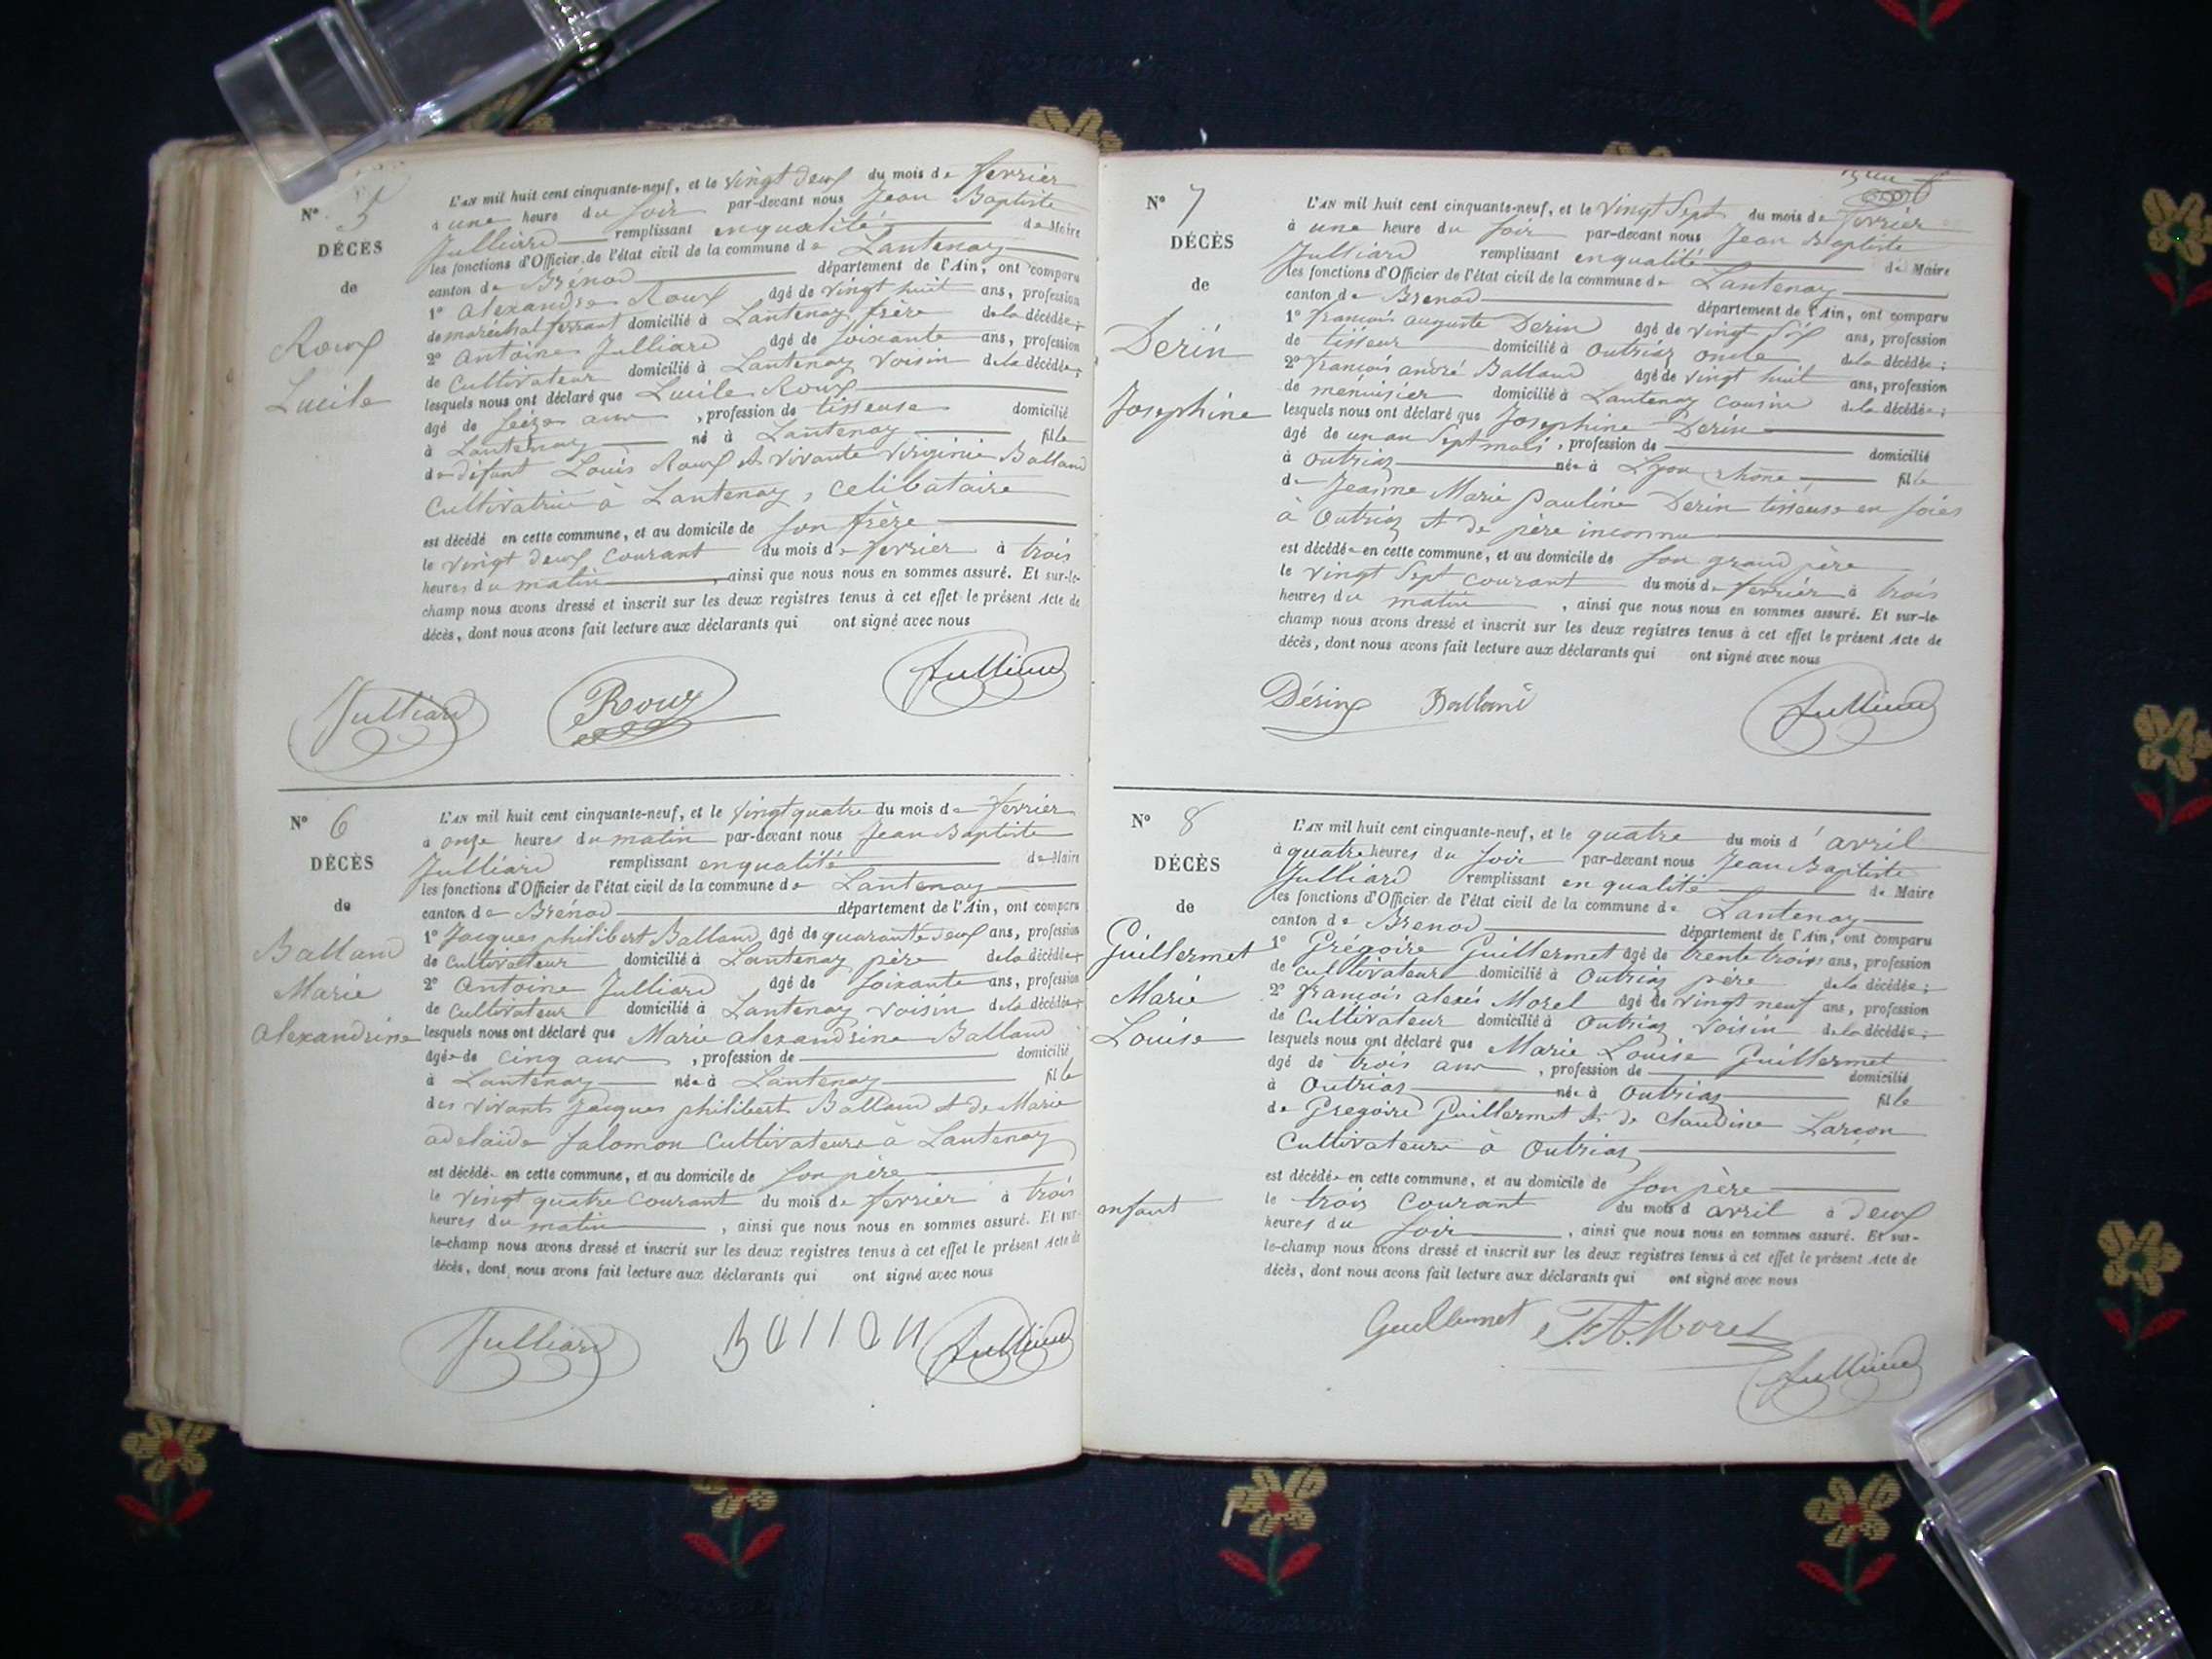 N° 5
DÉCÈS
de
Roux
Lucile
L'AN mil huit cent cinquante-neuf, et le vingt deux du mois de fevrier
à une heure du soir par-devant nous Jean Baptiste
Julliard remplissant enqualité de Maire
les fonctions d'Officier de l'état civil de la commune de Lantenay
canton de Brénod département de l'Ain, ont comparu
1° Alexandre Roux âgé de vingt huit ans, profession
de maréchal ferrant domicilié à Lantenay frère de la décédée;
2° Antoine Julliard âgé de soixante ans, profession
de Cultivateur domicilié à Lantenay voisin de la décédée;
lesquels nous ont déclaré que Lucile Roux
âgé de seize ans, profession de tisseuse domicilié
à Lantenay né à Lantenay fille
de défunt Louis Roux et vivante Virginie Balland
Cultivatrice à Lantenay, celibataire
est décédé en cette commune, et au domicile de son frère
le vingt deux courant du mois de fevrier à trois
heures du matin, ainsi que nous nous en sommes assuré. Et sur-le-
champ nous avons dressé et inscrit sur les deux registres tenus à cet effet le présent Acte de
décès, dont nous avons fait lecture aux déclarants qui ont signé avec nous
Julliard Roux Julliard
N° 6
DÉCÈS
de
Balland
Marie
alexandrine
L'AN mil huit cent cinquante-neuf, et le vingt quatre du mois de fevrier
à onze heures du matin par-devant nous Jean Baptiste
Julliard remplissant enqualité de Maire
les fonctions d'Officier de l'état civil de la commune de Lantenay
canton de Brénod département de l'Ain, ont comparu
1° Jacques philibert Balland âgé de quarante deux ans, profession
de cultivateur domicilié à Lantenay père de la décédée;
2° Antoine Julliard âgé de soixante ans, profession
de Cultivateur domicilié à Lantenay voisin de la décédée;
lesquels nous ont déclaré que Marie alexandrine Balland
âgée de cinq ans, profession de domicilié
à Lantenay née à Lantenay fille
des vivants Jacques philibert Balland et de Marie
adelaide Salomon Cultivateurs à Lantenay
est décédée en cette commune, et au domicile de son père
le vingt quatre courant du mois de fevrier à trois
heures du matin, ainsi que nous nous en sommes assuré. Et sur-
le-champ nous avons dressé et inscrit sur les deux registres tenus à cet effet le présent Acte de
décès, dont nous avons fait lecture aux déclarants qui ont signé avec nous
Julliard Ballan Julliard
N° 7
DÉCÈS
de
Derin
Josephine
L'AN mil huit cent cinquante-neuf, et le vingt Sept du mois de fevrier
à une heure du soir par-devant nous Jean Baptiste
Julliard remplissant enqualité de Maire
les fonctions d'Officier de l'état civil de la commune de Lantenay
canton de Brenod département de l'Ain, ont comparu
1° françois auguste Derin âgé de vingt six ans, profession
de tisseur domicilié à Outriaz oncle de la décédée;
2° françois andré Balland âgé de vingt huit ans, profession
de menuisier domicilié à Lantenay cousin de la décédée;
lesquels nous ont déclaré que Josephine Derin
âgé de un an Sept mois, profession de domicilié
à Outriaz née à Lyon rhône fille
de Jeanne Marie Pauline Derin tisseuse en soies
à Outriaz et de père inconnu
est décédée en cette commune, et au domicile de son grand père
le vingt Sept courant du mois de fevrier à trois
heures du matin, ainsi que nous nous en sommes assuré. Et sur-le-
champ nous avons dressé et inscrit sur les deux registres tenus à cet effet le présent Acte de
décès, dont nous avons fait lecture aux déclarants qui ont signé avec nous
Dérin Balland Julliard
N° 8
DÉCÈS
de
Guillermet
Marie
Louise
enfant
L'AN mil huit cent cinquante-neuf, et le quatre du mois d'avril
à quatre heures du soir par-devant nous Jean Baptiste
Julliard remplissant en qualité de Maire
les fonctions d'Officier de l'état civil de la commune de Lantenay
canton de Brenod département de l'Ain, ont comparu
1° Grégoire Guillermet âgé de trente trois ans, profession
de cultivateur domicilié à Outriaz père de la décédée;
2° françois alexis Morel âgé de vingt neuf ans, profession
de Cultivateur domicilié à Outriaz voisin de la décédée;
lesquels nous ont déclaré que Marie Louise Guillermet
âgé de trois ans, profession de domicilié
à Outriaz née à Outriaz fille
de Gregoire Guillermet et de Claudine Larçon
Cultivateurs à Outriaz
est décédée en cette commune, et au domicile de son père
le trois courant du mois d avril à deux
heures du soir, ainsi que nous nous en sommes assuré. Et sur-
le-champ nous avons dressé et inscrit sur les deux registres tenus à cet effet le présent Acte de
décès, dont nous avons fait lecture aux déclarants qui ont signé avec nous
Guillermet F. A. Morel
Julliard